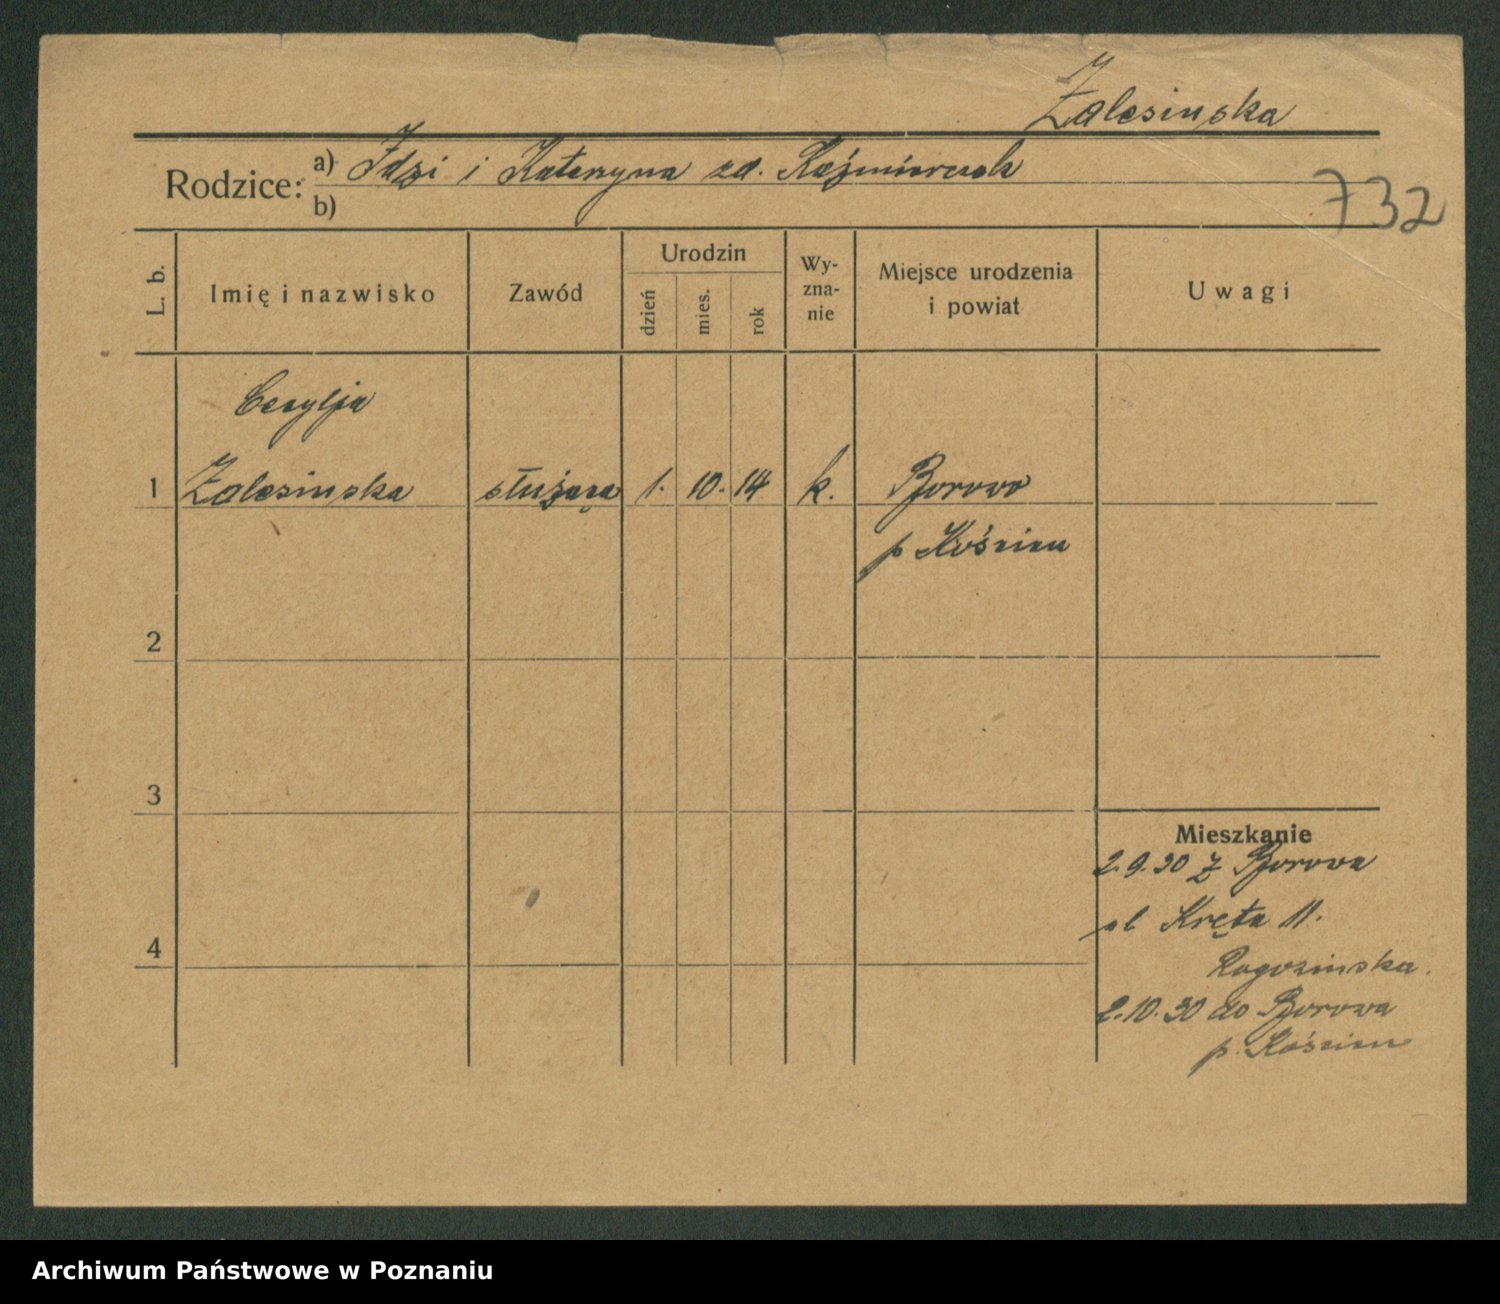 Zalesinska
Rodzice: a) Idzi i Katarzyna zd. Kaźmierczak
b)
732
L. b.
Imię i nazwisko
Zawód
Urodzin
dzień
mies.
rok
Wy-
zna-
nie
Miejsce urodzenia
i powiat
Uwagi
Cecylja
1 Zalesinska służąca 1. 10. 14 k. Borowo
p Kościan
2
3
Mieszkanie
2.9.30 z Borowa
ul Kręta 11.
4
Rogozinska.
2.10.30 do Borowa
p. Kościan
Archiwum Państwowe w Poznaniu